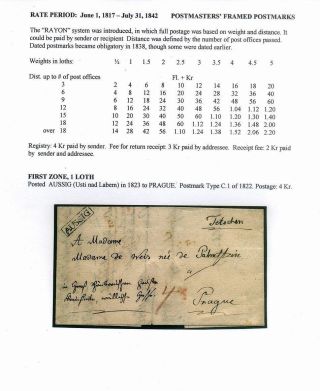 RATE PERIOD: June 1, 1817 – July 31, 1842 POSTMASTERS' FRAMED POSTMARKS
The "RAYON" system was introduced, in which full postage was based on weight and distance. It
could be paid by sender or recipient Distance was defined by the number of post offices passed.
Dated postmarks became obligatory in 1838, though some were dated earlier.
Weights in loths: ½ 1 1.5 2 2.5 3 3.5 4 4.5 5
Dist. up to # of post offices Fl. + Kr
3 2 4 6 8 10 12 14 16 18 20
6 4 8 12 16 20 24 28 32 36 40
9 6 12 18 24 30 36 42 48 56 60
12 8 16 24 32 40 48 56 1.04 1.12 1.20
15 10 20 30 40 50 60 1.10 1.20 1.30 1.40
18 12 24 36 48 60 1.12 1.24 1.36 1.48 2.00
over 18 14 28 42 56 1.10 1.24 1.38 1.52 2.06 2.20
Registry: 4 Kr paid by sender. Fee for return receipt: 3 Kr paid by addressee. Receipt fee: 2 Kr paid
by sender and addressee.
FIRST ZONE, 1 LOTH
Posted AUSSIG (Usti nad Labem) in 1823 to PRAGUE. Postmark Type C.1 of 1822. Postage: 4 Kr.
AUSSIG
Tetschen
A Madame
Madame de née de
à
Prague